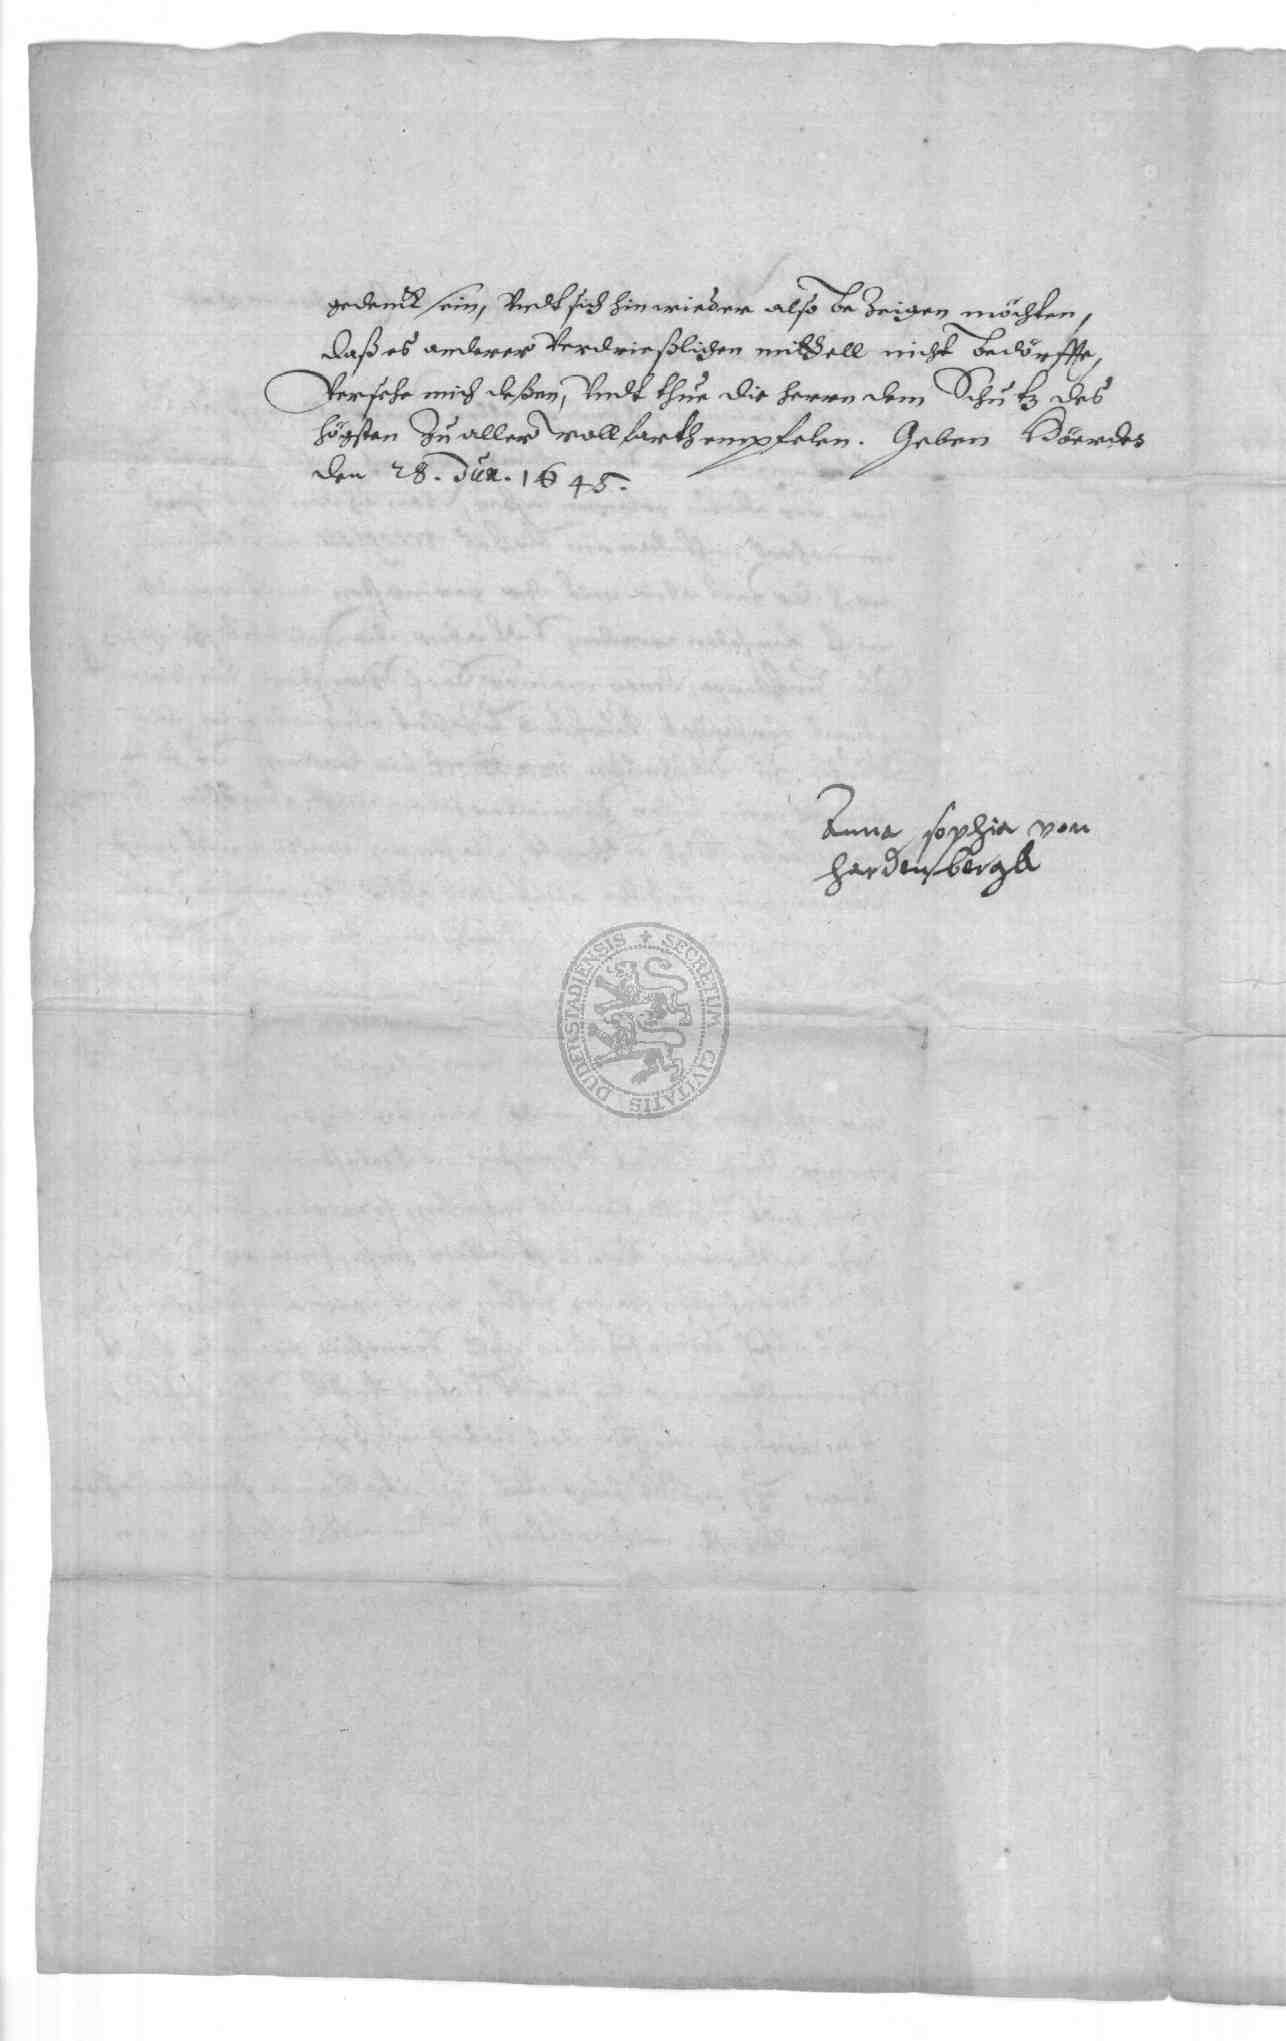 gedenck sein, Undt sich hinwieder also bezeigen möchten,
daß es anderer verdrießlichen mittell nicht bedörffte,
Versehe mich deßen, Undt thue die herrn dem Schutz des
högsten zu aller wollfarth empfelen. Geben
den 28. Jun. 1645.
Anna sophia von
hardenbergk
SECRETUM CIVITATIS DUDERSTADIENSIS